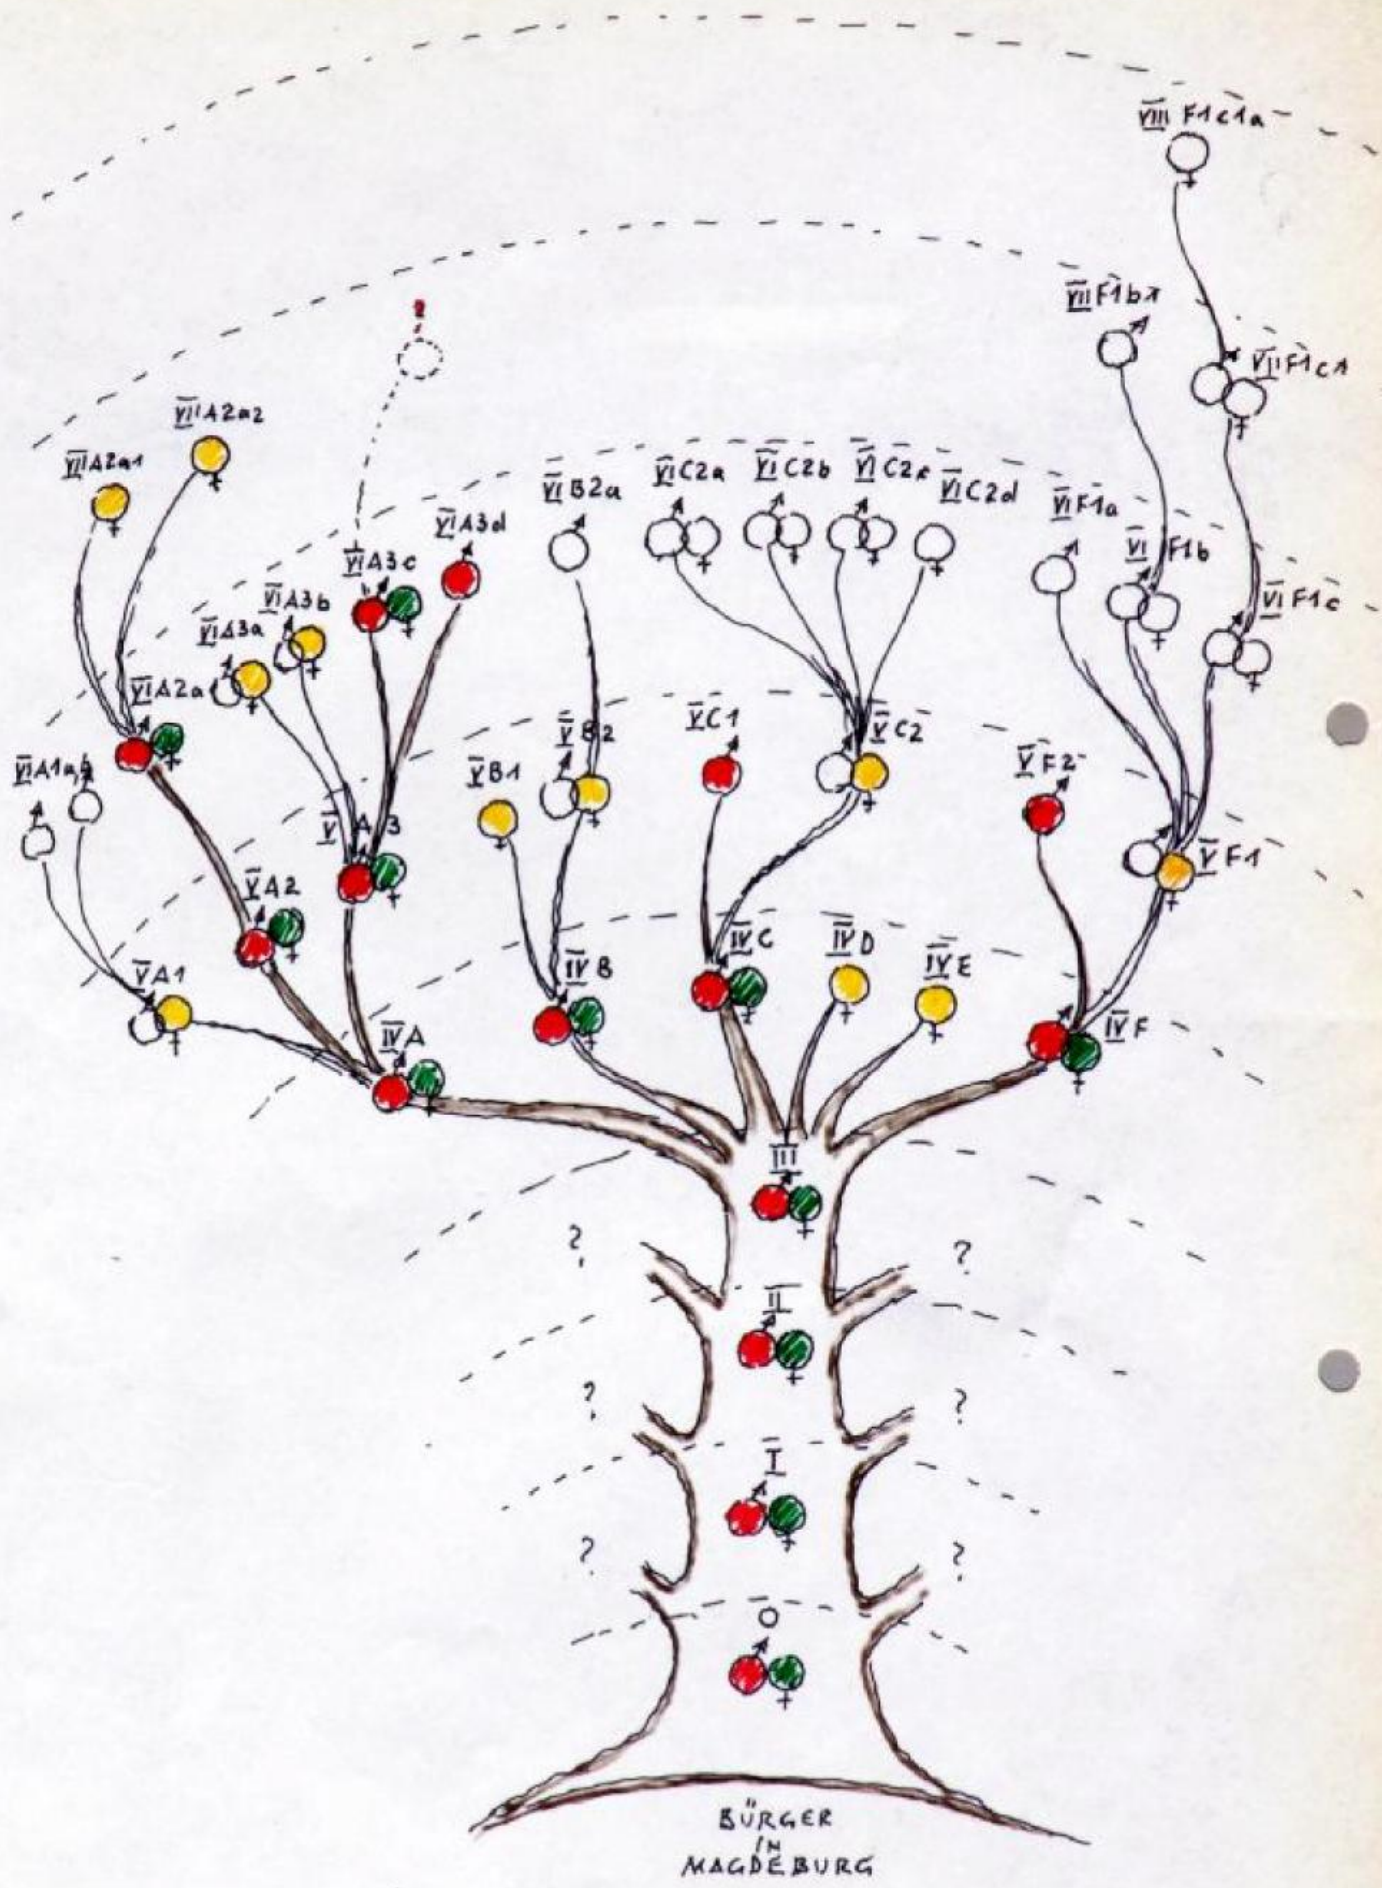 VIII F1c1a
VII F1b1
?
VII F1c1
VII A2a2
VII A2a1
VI A3d
VI B2a
VI C2a
VI C2b
VI C2c
VI C2d
VI F1a
VI F1b
VI F1c
VI A3c
VI A3b
VI A3a
VI A2a
VI A1a,b
V B1
V B2
V C1
V C2
V F2
V F1
V A3
V A2
V A1
IV A
IV B
IV C
IV D
IV E
IV F
III
? ?
II
? ?
I
? ?
O
BÜRGER
IN
MAGDEBURG